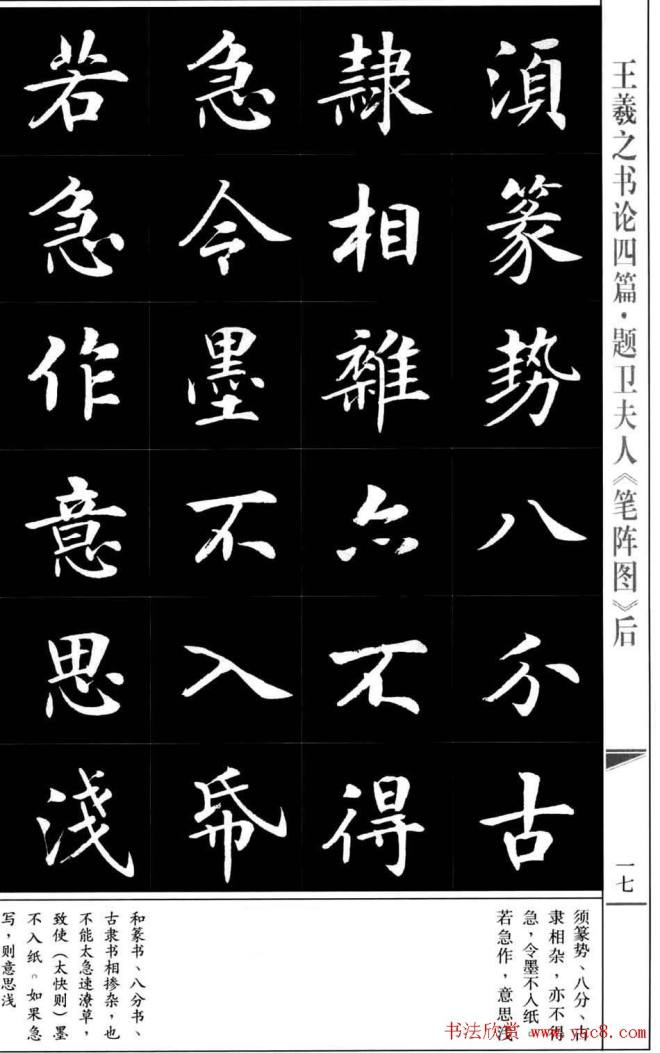 王羲之书论四篇·题卫夫人《笔阵图》后
一七
須篆勢八分古
隷相雜亦不得
急令墨不入帋
若急作意思淺
须篆势、八分、古
隶相杂，亦不得
急，令墨不入纸。
若急作，意思浅
和篆书、八分书、
古隶书相掺杂，也
不能太急速潦草，
致使（太快则）墨
不入纸。如果急
写，则意思浅
书法欣赏 www.yac8.com